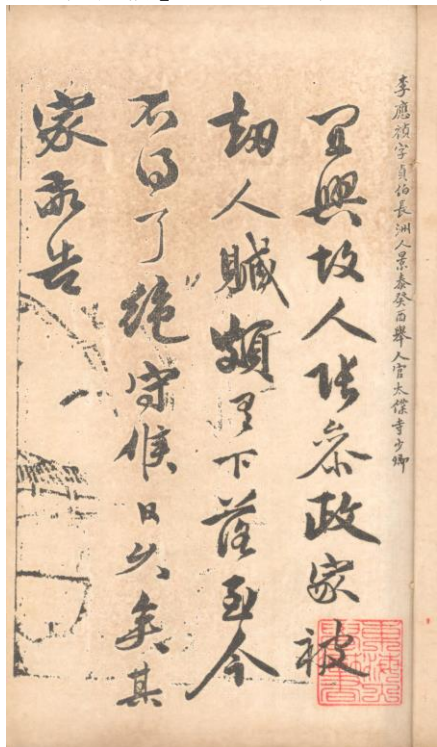 李應禎字貞伯長洲人景泰癸酉舉人官太僕寺少卿
宜興故人張參政家被
劫人贓頗有下落至今
不得了絕守候日久矣其
家告